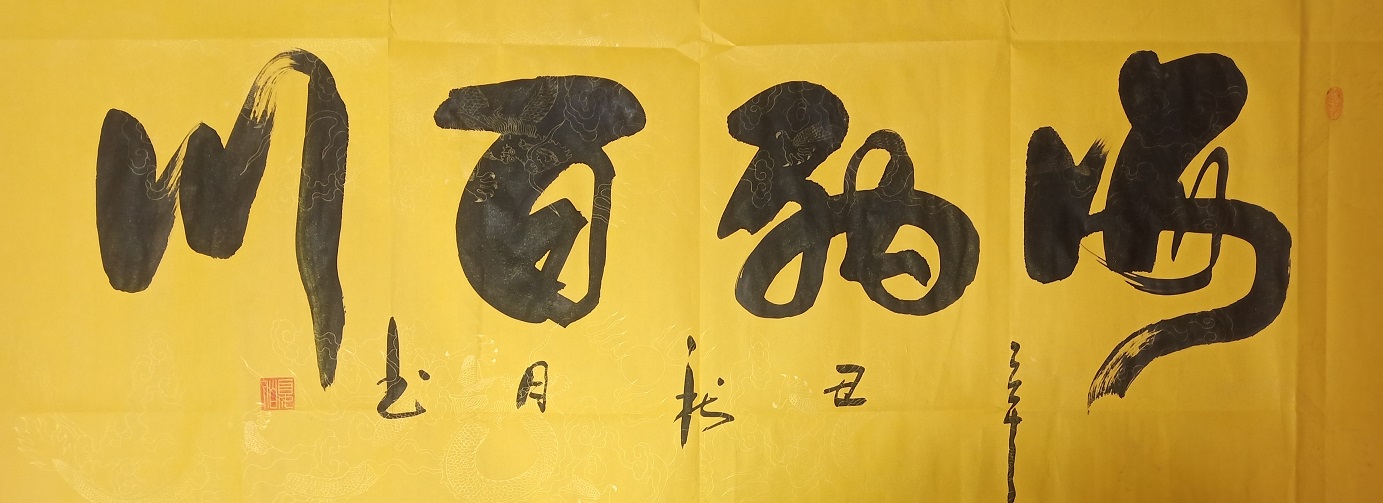 海纳百川
辛丑秋月书